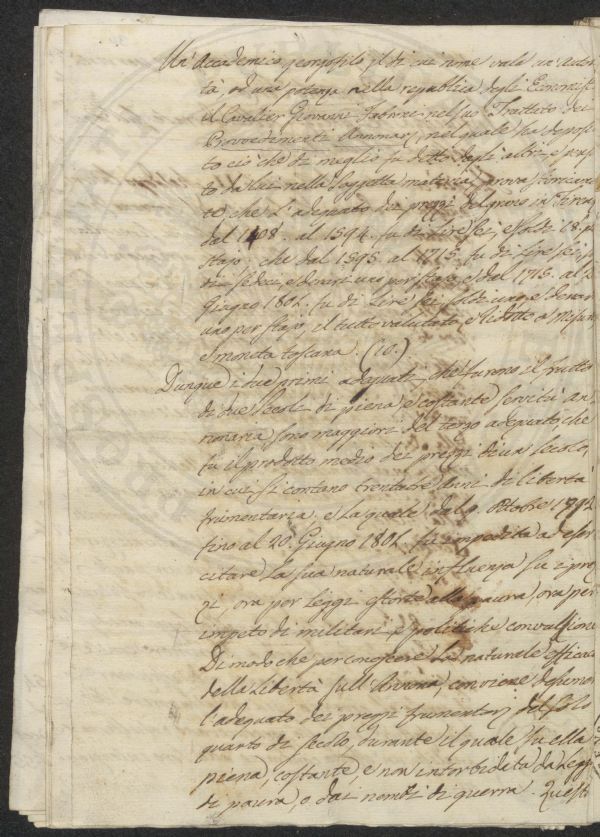 Un' Accademico georgofilo il di cui nome vale un' autori
tà, ed una potenza nella republica degli Economisti
il Cavalier Giovanni Fabroni nel suo Trattato dei
Provvedimenti Annonarj, nel quale ha deposi
to ciò che di meglio fu detto dagli altri, e
to da lui nella soggetta materia, prova storicamen
te, che l'adequato dei prezzi del grano in
dal 1408. al 1594. fu di Lire sei, e soldi 18. p
stajo; che dal 1595. al 1715. fu di Lire sei, s
di sedici, e denari uno per stajo, e dal 1715. al 2
Giugno 1802. fu di Lire sei soldi uno, e denari
uno per stajo, il tutto valutato, e ridotto a Misura
e moneta toscana. (10.)
Dunque i due primi adequati, che furono il frutto
di due secoli di piena e costante servitù an
nonaria sono maggiori del terzo adequato, che
fu il prodotto medio dei prezzi di un secolo,
in cui si contano trentatre anni di libertà
frumentaria, e la quale dal 9. Ottobre 1792
fino al 20. Giugno 1802. fu impedita ad eser
citare la sua naturale influenza su i pre
zi, ora per leggi estorte alla paura, ora per
impeto di militari e politiche convulsioni
Di modo che per conoscere la naturale efficac
della libertà sull'Annona, conviene desumer
l'adequato dei prezzi frumentarj del solo
quarto di secolo, durante il quale fu ella
piena, costante, e non intorbidita da legg
di paura, o dai nembi di guerra. Questi